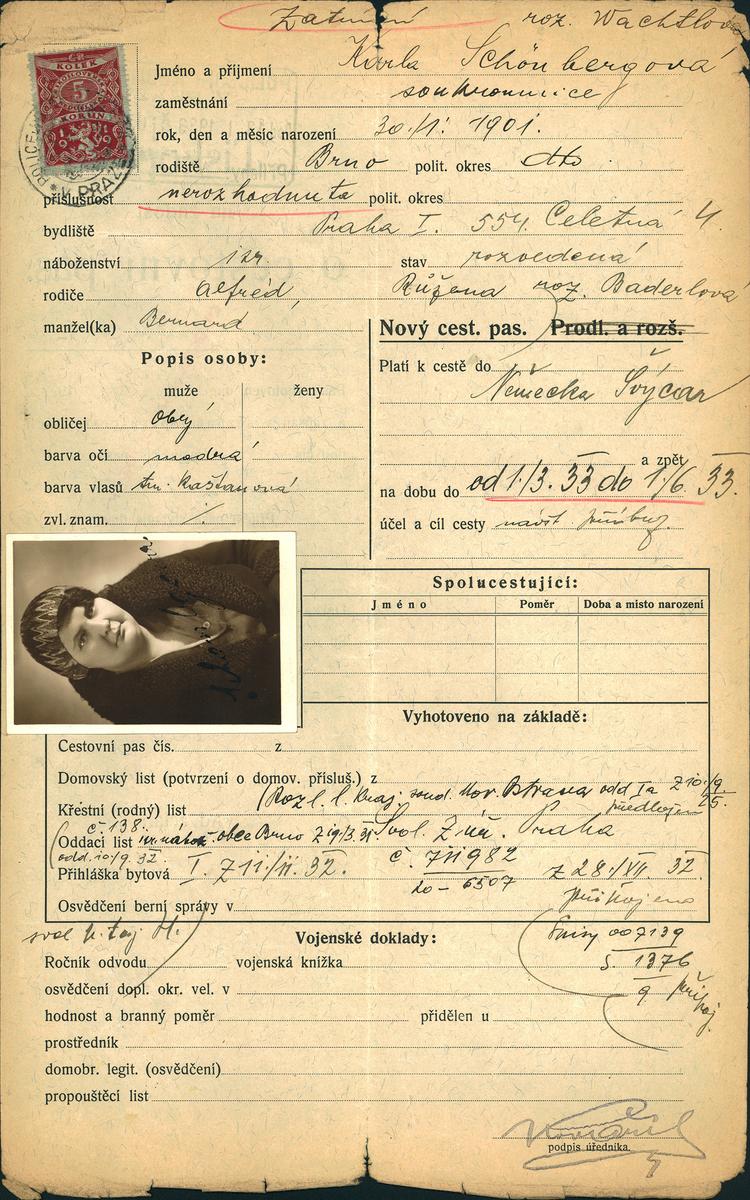 Zatímní roz. Wachtlová
ČS
KOLEK
5
KORUN
1919
V PRAZE
Jméno a příjmení Karla Schönbergová
zaměstnání soukromnice
rok, den a měsíc narození 30./1. 1901.
rodiště Brno polit. okres dto
příslušnost nerozhodnuta polit. okres
bydliště Praha I. 554. Celetná 4.
náboženství izr. stav rozvedená
rodiče Alfréd, Růžena roz. Baderlová
manžel(ka) Bernard
Nový cest. pas. Prodl. a rozš.
Popis osoby:
Platí k cestě do Německa Švýcar
muže ženy
obličej oblý
barva očí modrá
barva vlasů tm. kaštanová
zvl. znam. ·/.
a zpět
na dobu do od 1./3. 33 do 1./6. 33.
účel a cíl cesty návšt. příbuz.
Spolucestující:
Jméno Poměr Doba a místo narození
Vyhotoveno na základě:
Cestovní pas čís. z
Domovský list (potvrzení o domov. přísluš.) z
(Rozl. l. Kraj. soud. Mor. Ostrava odd Ia z 10./9. 25.
Křestní (rodný) list předložen
č. 138.
Oddací list obce Brno z 19/3. 31 Praha
odd. 10/9. 32.
Přihláška bytová I. z 11/11. 32. č. 711982 z 28./XII. 32.
20 – 6507
Osvědčení berní správy v připojeno
Vojenské doklady:
007139
Ročník odvodu vojenská knížka 5. 1376
osvědčení dopl. okr. vel. v 9 připoj.
hodnost a branný poměr přidělen u
prostředník
domobr. legit. (osvědčení)
propouštěcí list
podpis úředníka.